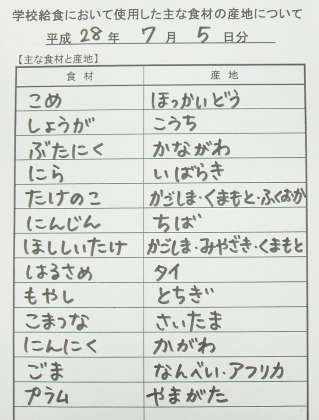 学校給食において使用した主な食材の産地について
平成 28 年 7 月 5 日分
【主な食材と産地】
食材 産地
こめ ほっかいどう
しょうが こうち
ぶたにく かながわ
にら いばらき
たけのこ かごしま・くまもと・ふくおか
にんじん ちば
ほししいたけ かごしま・みやざき・くまもと
はるさめ タイ
もやし とちぎ
こまつな さいたま
にんにく かがわ
ごま なんべい・アフリカ
プラム やまがた